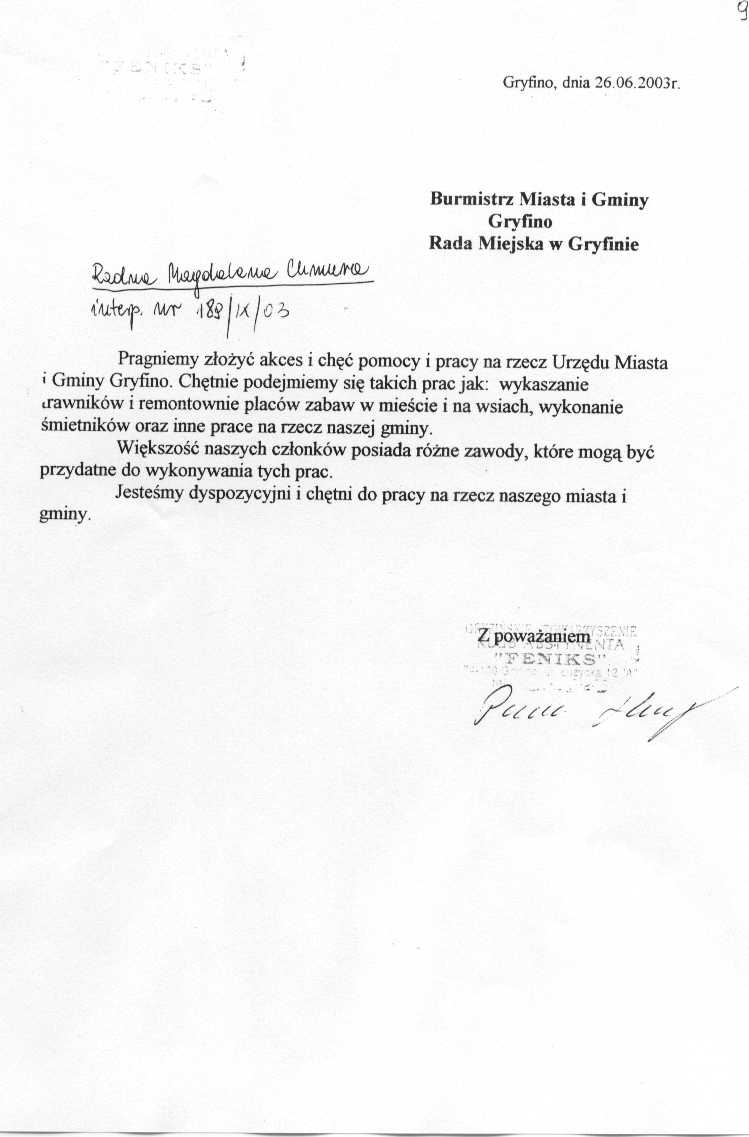 9
"FENIKS"
Gryfino, dnia 26.06.2003r.
Burmistrz Miasta i Gminy
Gryfino
Rada Miejska w Gryfinie
Radna Magdalena Chmura
interp. nr 189/IX/03
Pragniemy złożyć akces i chęć pomocy i pracy na rzecz Urzędu Miasta
i Gminy Gryfino. Chętnie podejmiemy się takich prac jak: wykaszanie
trawników i remontownie placów zabaw w mieście i na wsiach, wykonanie
śmietników oraz inne prace na rzecz naszej gminy.
Większość naszych członków posiada różne zawody, które mogą być
przydatne do wykonywania tych prac.
Jesteśmy dyspozycyjni i chętni do pracy na rzecz naszego miasta i
gminy.
Z poważaniem
"FENIKS"